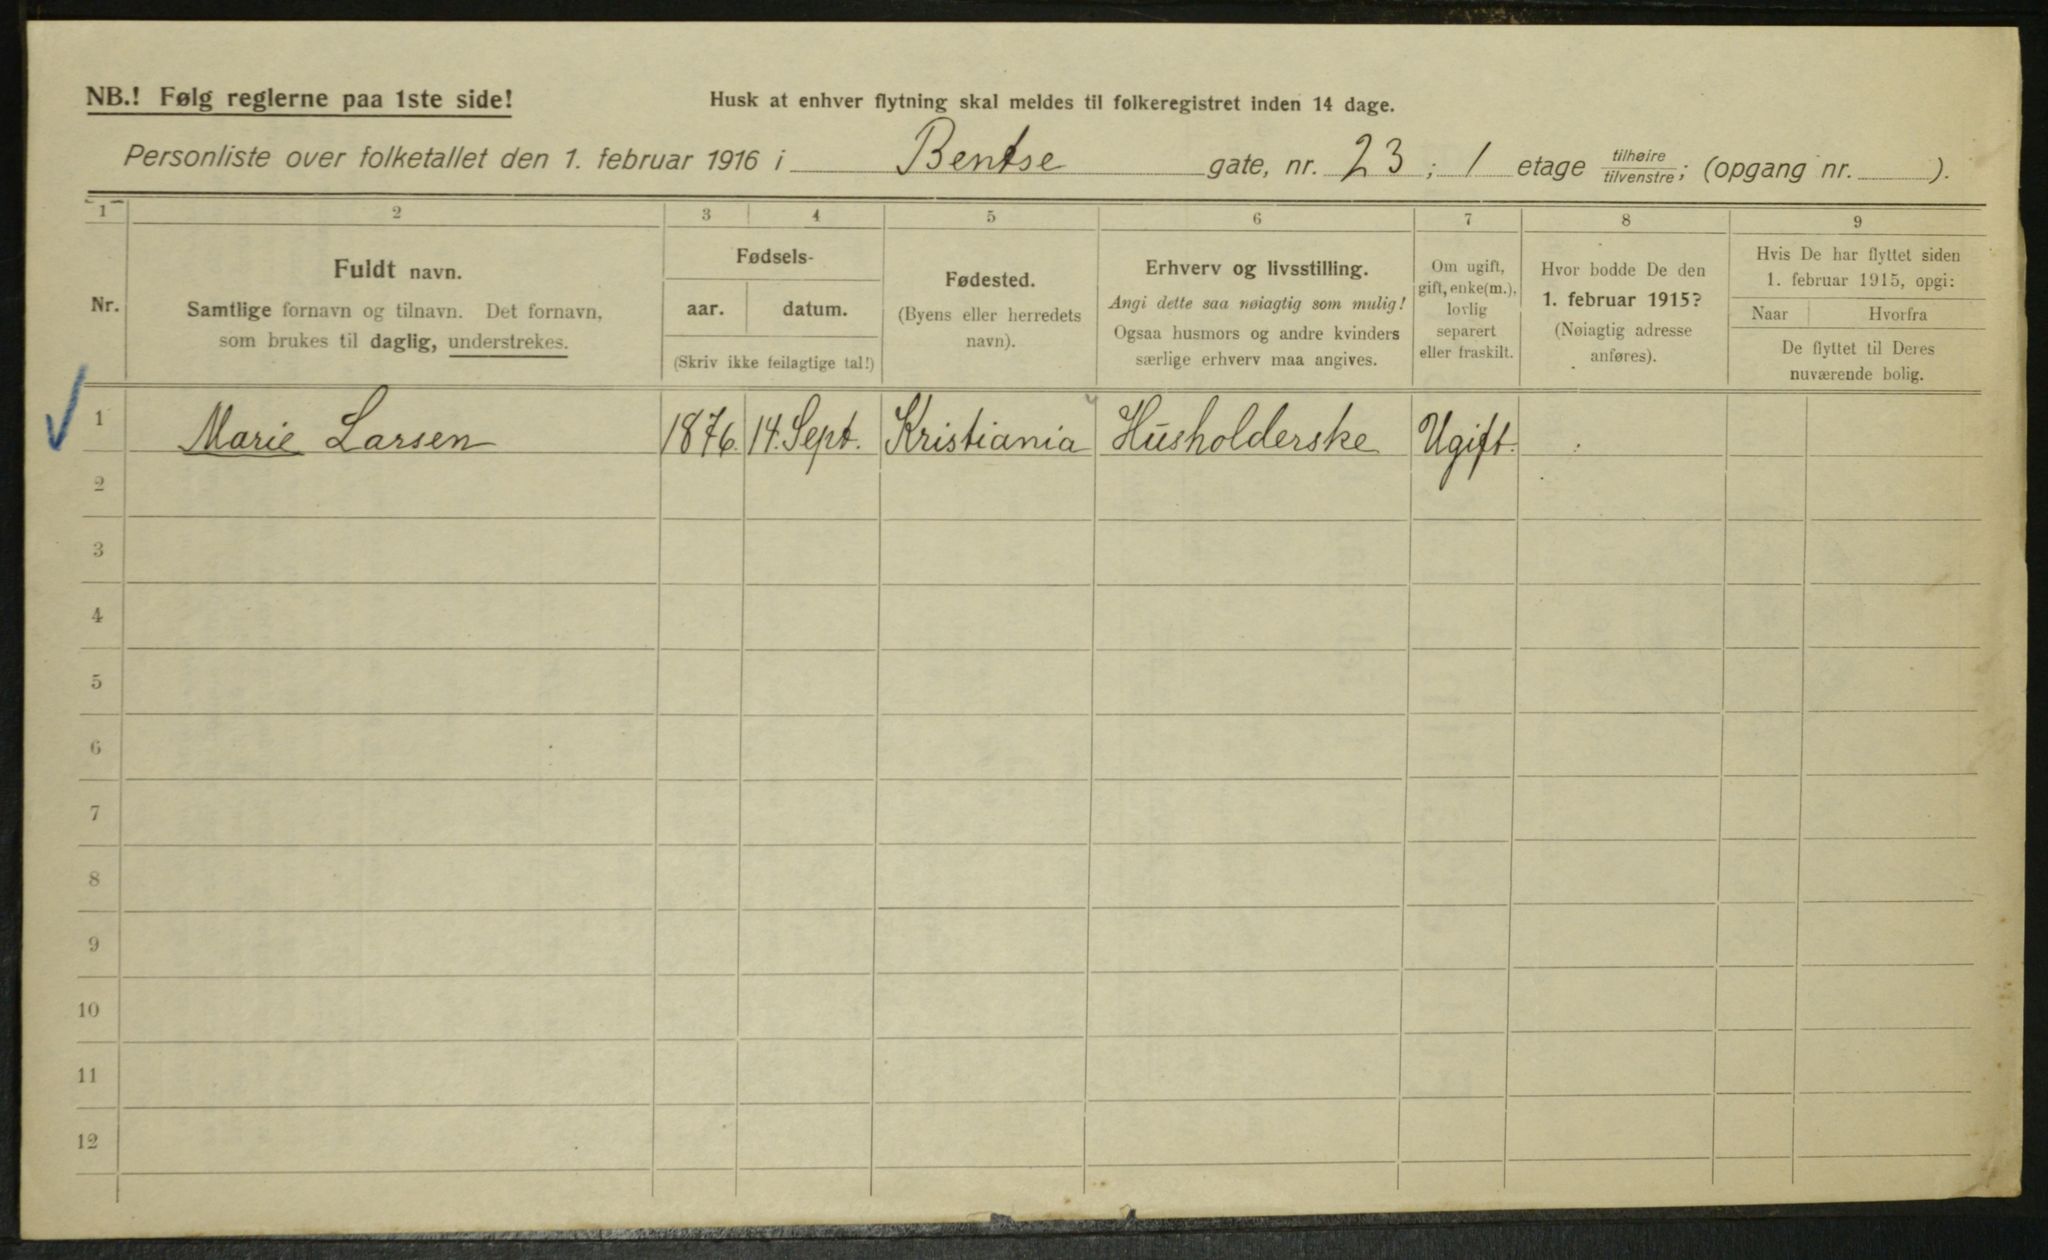 NB.! Følg reglerne paa 1ste side!
Husk at enhver flytning skal meldes til folkeregistret inden 14 dage.
Personliste over folketallet den 1. februar 1916 i Bentse gate, nr. 23; 1 etage tilhøire/tilvenstre; (opgang nr. ).
1 2 3 4 5 6 7 8 9
Nr.
Fuldt navn.
Samtlige fornavn og tilnavn. Det fornavn,
som brukes til daglig, understrekes.
Fødsels-
aar. datum.
(Skriv ikke feilagtige tal!)
Fødested.
(Byens eller herredets
navn).
Erhverv og livsstilling.
Angi dette saa nøiagtig som mulig!
Ogsaa husmors og andre kvinders
særlige erhverv maa angives.
Om ugift,
gift, enke(m.),
lovlig
separert
eller fraskilt.
Hvor bodde De den
1. februar 1915?
(Nøiagtig adresse
anføres).
Hvis De har flyttet siden
1. februar 1915, opgi:
Naar Hvorfra
De flyttet til Deres
nuværende bolig.
1 Marie Larsen 1876. 14. Sept. Kristiania Husholderske Ugift.
2
3
4
5
6
7
8
9
10
11
12